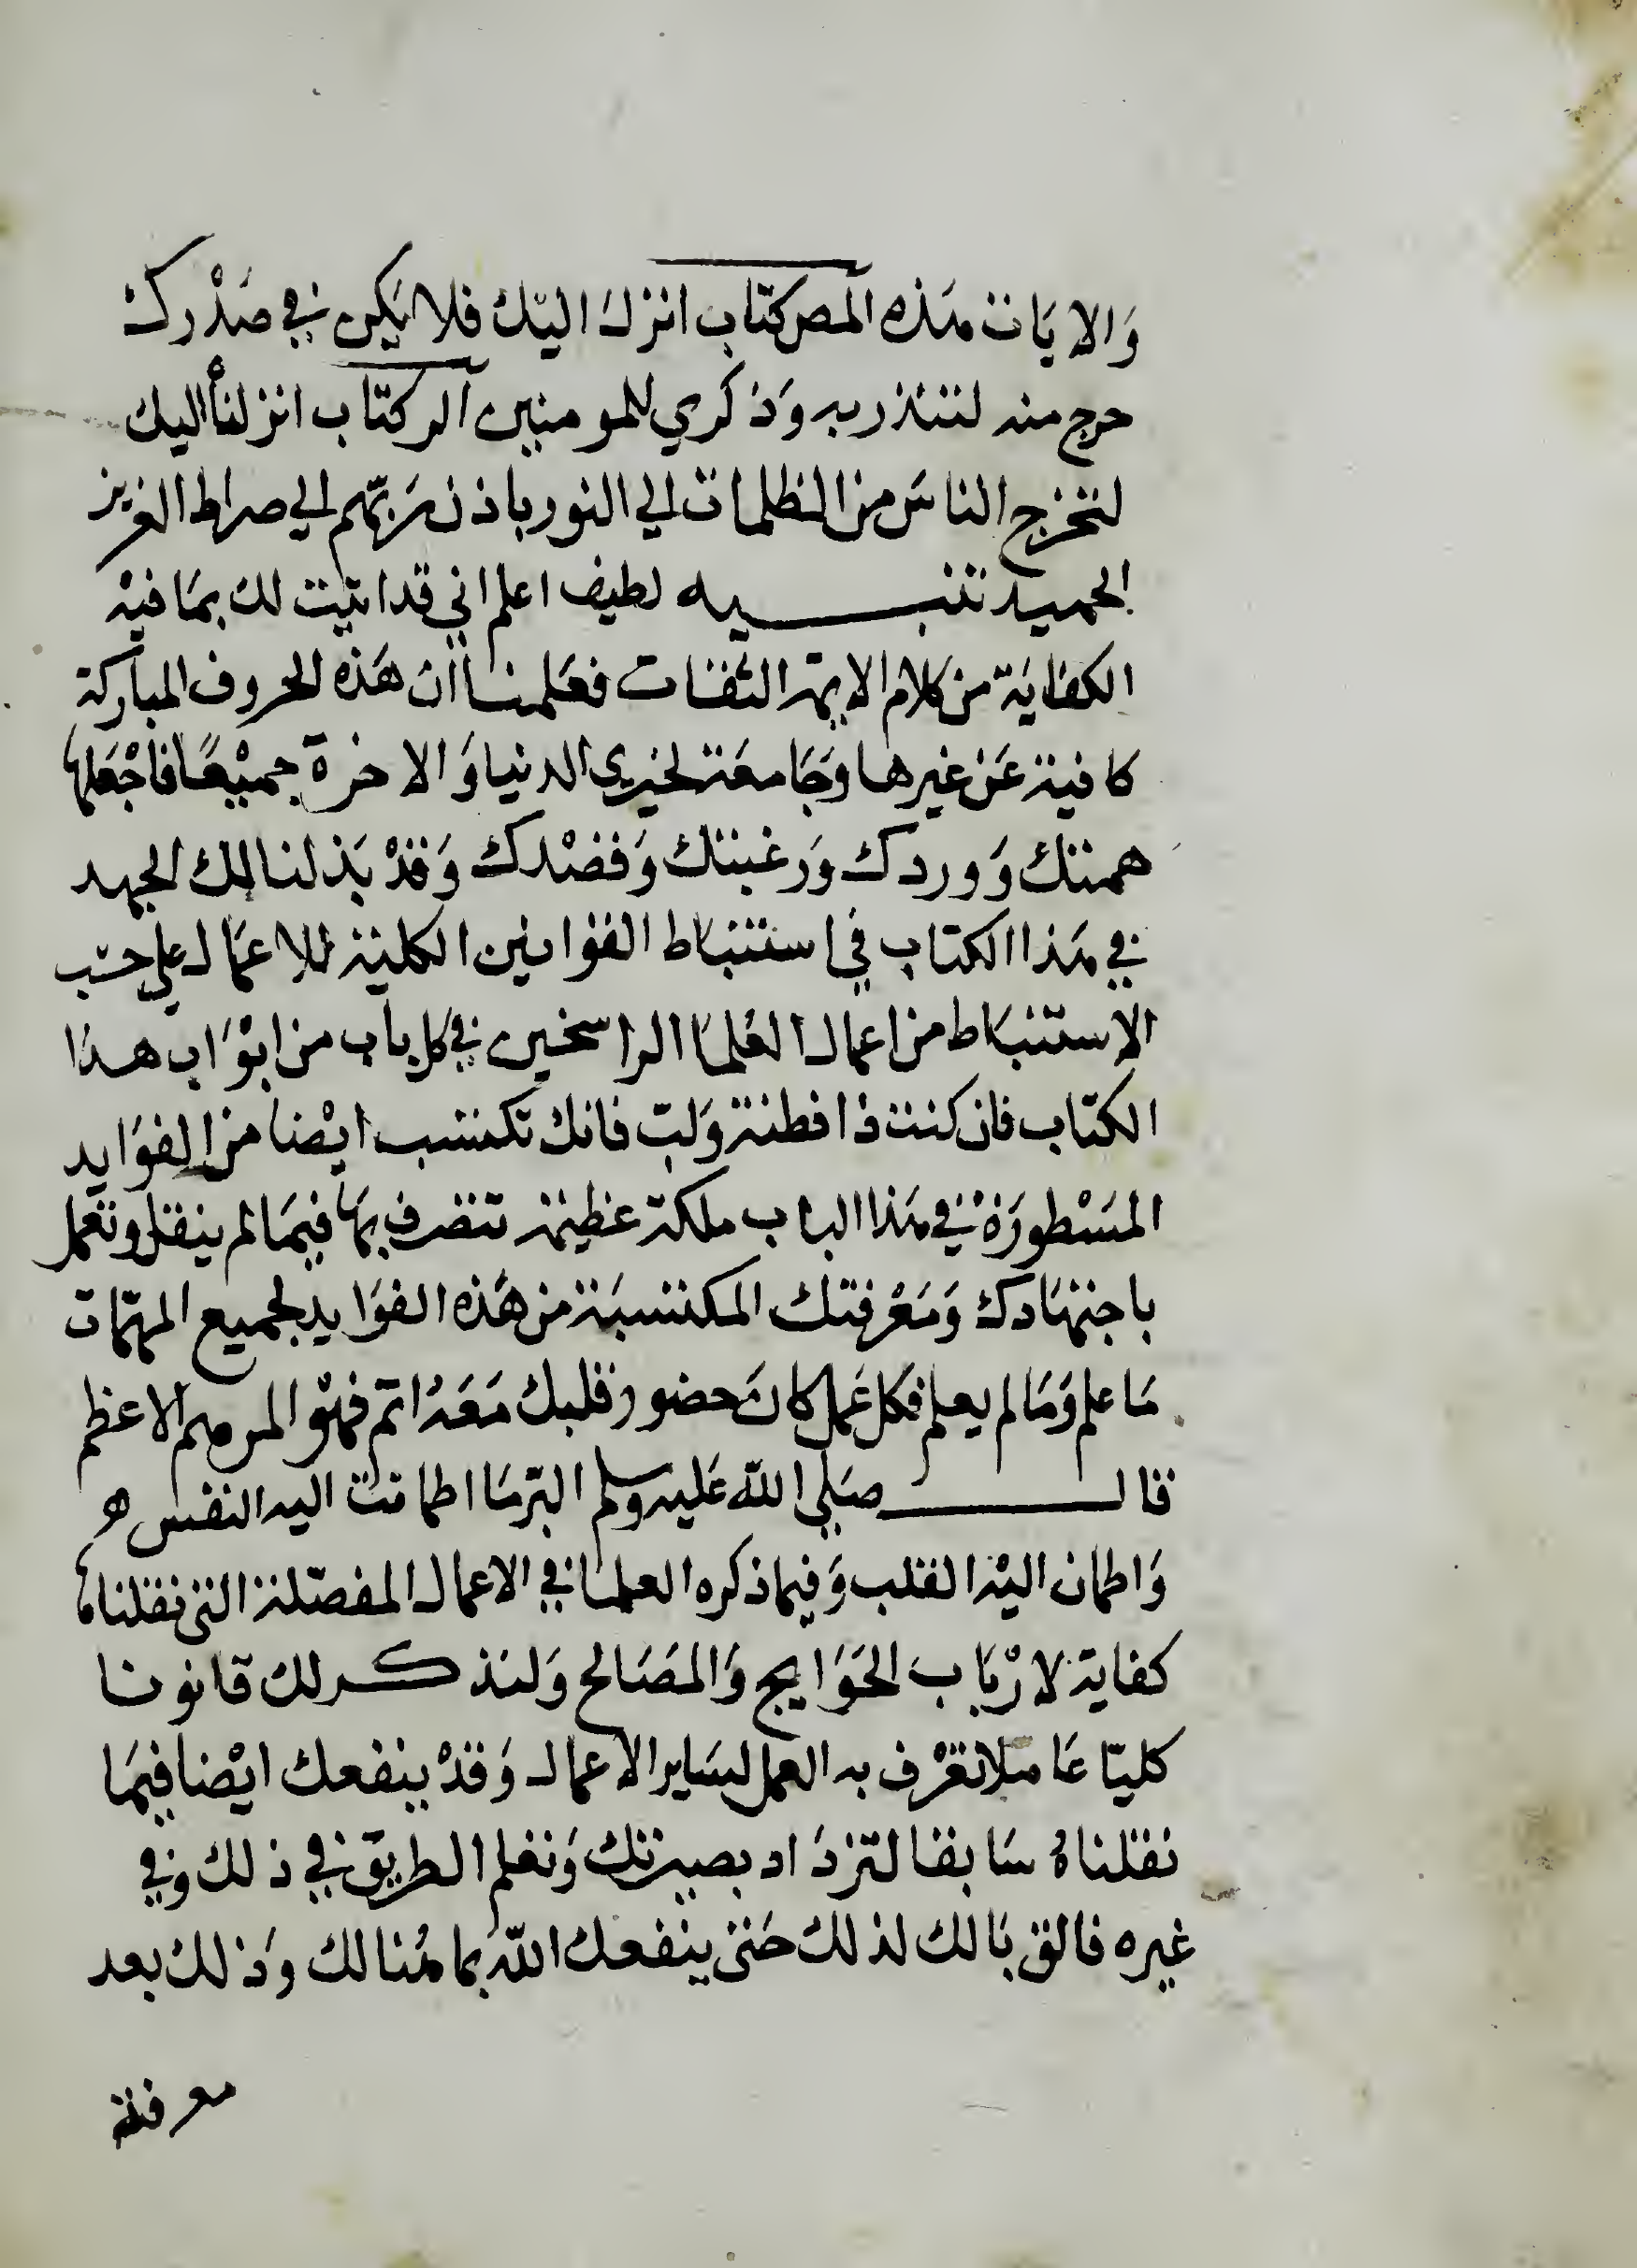 وَالايَات هَذه المص كتاب انزل اليك فلا يكن في صَدْرك
حرج منه لتنذر به وَذكري للمومنين الر كتاب انزلناه اليك
لتخرج الناسَ من الظلمات الي النور باذن رَبّهم الي صراط العزيز
الحميد تنبـــــيه لطيف اعلم اني قد اتيت لك بمَا فيْه
الكفايَة من كلام الايمة الثقات فعَلمنا ان هَذه الحروف المباركة
كافية عَن غيرها وَجَامعَة لخيرى الدنيا وَالاخرة جميْعًا فاجْعَلها
همتك وَوردك وَرغبتك وَقصْدك وَقدْ بَذلنا لك الجهد
في هَذا الكتاب في استنبَاط القوانين الكلية للاعمَال علي حسَب
الاستنبَاط من اعمال العُلمَا الراسخين في كل باب من ابْوَاب هذا
الكتاب فان كنت ذا فطنة وَلبّ فانك تكتسب ايْضا من الفوَايد
المسَْطورَة في هَذا الباب ملكة عَظيمة تتصرف بهَا فيمَا لم ينقل وتعمل
باجتهَادك وَمَعْرفتك المكتسبَة من هَذه الفوَايد لجميع المهمّات
مَا علم وَمَا لم يعلم فكل عَمل كانَ حضور قلبك مَعَهُ اتم فهْو المرهم الاعظم
قالـــــــ صَلي الله عَليه وسلم البرّ مَا اطمانت اليه النفس ه
وَاطمان اليْه القلب وَفيما ذكره العلما في الاعمال المفصّلة التي نقلناها
كفاية لارْبَاب الحَوَايج وَالمصَالح وَلنذكــر لك قانونا
كليّا عَاملا تعْرف به العمل لسَاير الاعمال وَقدْ ينفعك ايْضا فيمَا
نقلناهُ سَابقا لتزدَاد بصيرتك وَتعلم الطريق في ذلك وفي
غيره فالق بَالك لذلك حَتى ينفعك الله بما هُنالك وَذلك بعد
معرفة